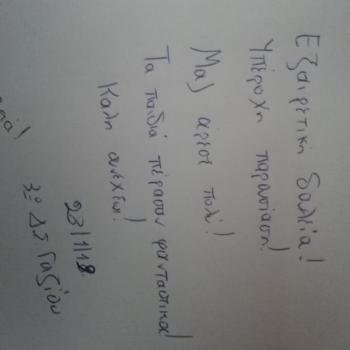 Εξαιρετική δουλειά!
Υπέροχη παρουσίαση!
Μας άρεσε πολύ!
Τα παιδιά πέρασαν φανταστικά!
Καλή συνέχεια!
23/1/18
3ο ΔΣ Γαζίου